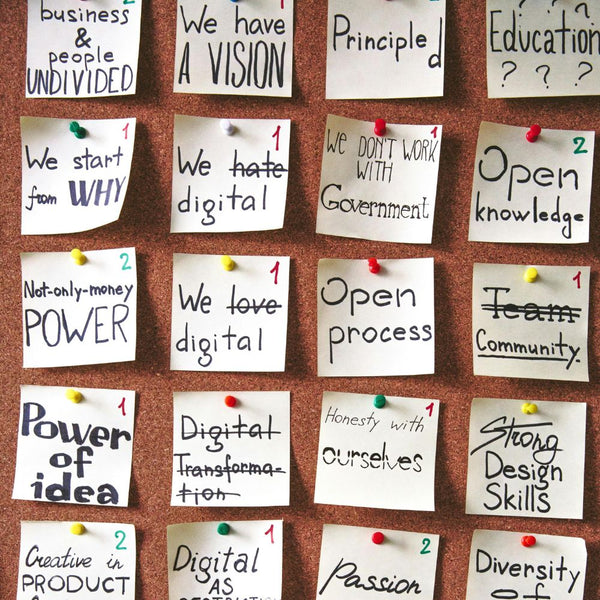 2
business
&
people
UNDIVIDED
1
We have
A VISION
2
Principled
? ? ?
Education
? ? ?
1
We start
from WHY
1
We hate
digital
1
WE DON'T WORK
WITH
Government
2
Open
knowledge
2
Not-only-money
POWER
1
We love
digital
Open
process
1
Team
Community.
1
Power
of
idea
Digital
Transforma-
tion
1
Honesty with
ourselves
2
Strong
Design
Skills
2
Creative in
PRODUCT
1
Digital
AS
2
Passion
Diversity
of